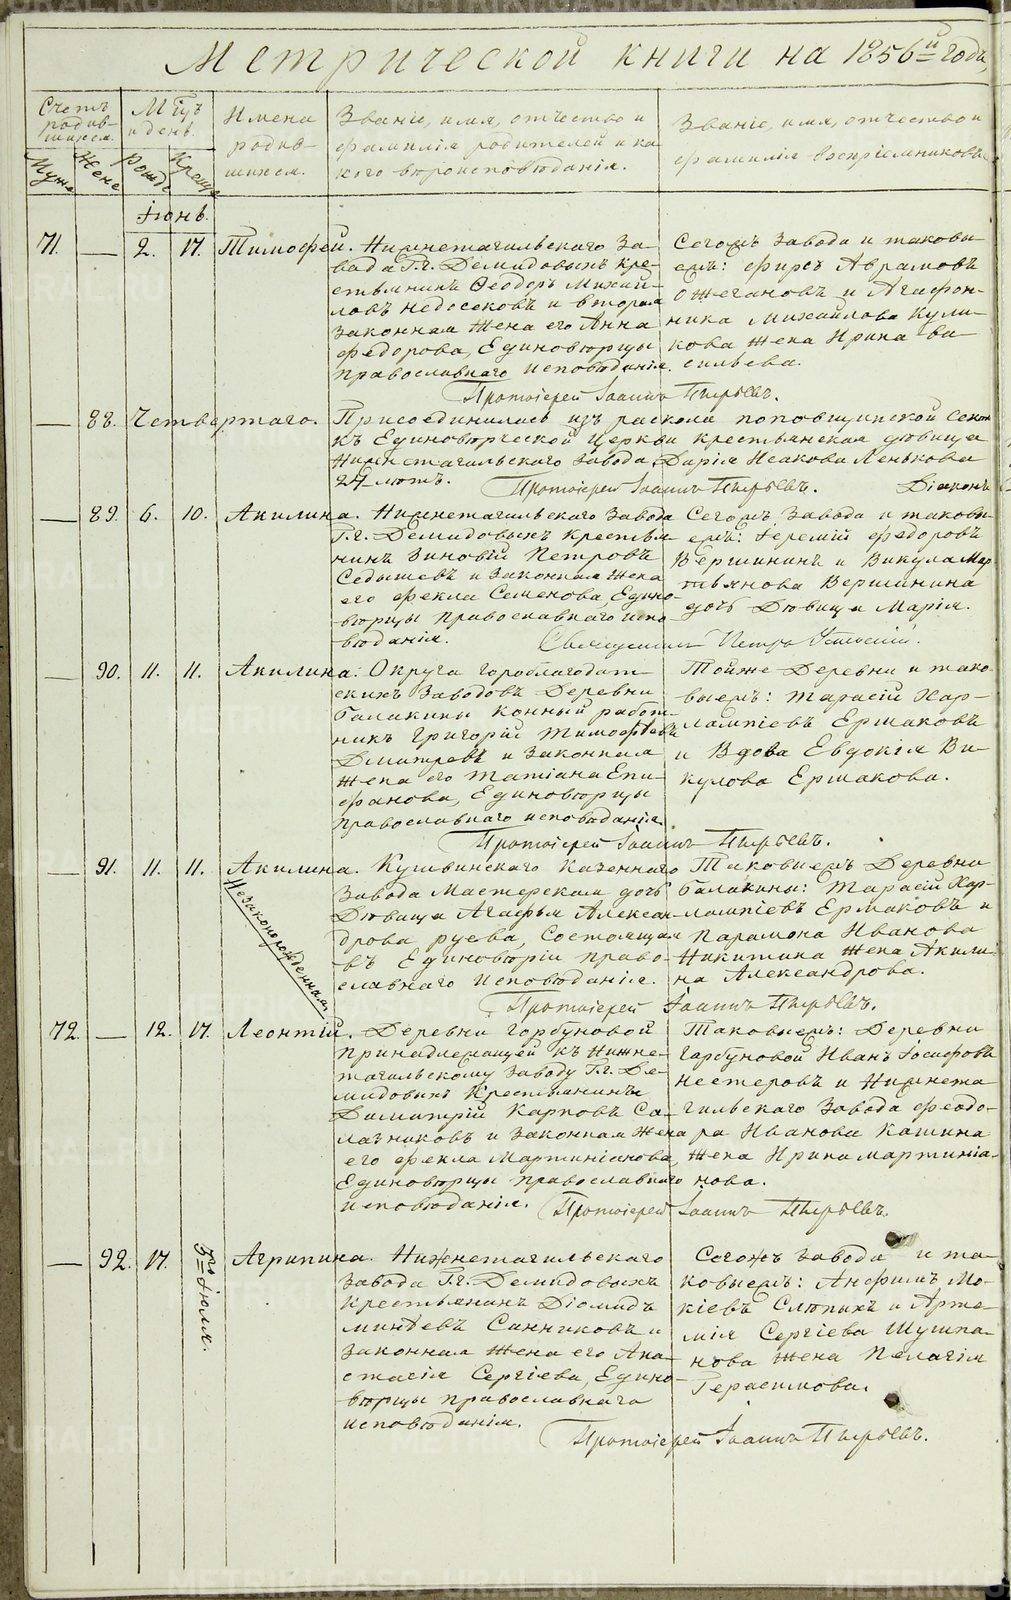 Метрической книги на 1856й годъ,
Счетъ родив-шихся.
Мужс Жене
Мѣцъ и день.
Рожд Креще
Имена родив-шихся.
Званіе, имя, отчество и
фамилія родителей и ка-
кого вѣроисповѣданія.
Званіе, имя, отчество и
фамилія воспріемниковъ
Іюнь.
71. — 2. 17. Тимофей.
Нижнетагильскаго За-
вода Г.г. Демидовыхъ кре-
стьянинъ Ѳеодоръ Михай-
ловъ Недосековъ и вторая
законная жена его Анна
Федорова, Единовѣрцы
православнаго исповѣданія.
Сегожъ Завода и таковы-
ежъ: Фирсъ Аврамовъ
Ожегановъ и Агафон-
ника Михайлова Кули-
кова жена Ирина Ва-
сильева.
Протоіерей Іоаннъ Пырьевъ.
— 88. Четвертаго.
Присоединилась изъ раскола поповщинской секты
къ Единовѣрческой Церкви крестьянская дѣвица
Нижнетагильскаго завода Дарія Исакова Ленькова
24 лѣтъ.
Протоіерей Іоаннъ Пырьевъ. Діаконъ
— 89. 6. 10. Акилина.
Нижнетагильскаго Завода
Г.г. Демидовыхъ крестья-
нинъ Зиновій Петровъ
Седышевъ и законная жена
его Фекла Семенова Едино-
вѣрцы православнаго испо
вѣданія.
Сегожъ Завода и таковы-
ежъ: Іеремій Федоровъ
Вершининъ и Викула Мар
тьянова Вершинина
дочь Дѣвица Марія.
Священникъ Петръ
— 90. 11. 11. Акилина.
Округа Гороблагодат-
скихъ Заводовъ Деревни
Балакины конный работ-
никъ Григорій Тимофѣевъ
Дмитревъ и законная
жена его Татіана Епи-
фанова, Единовѣрцы
православнаго исповѣданія.
Тойже Деревни и тако-
выежъ: Тарасій Хар-
лампіевъ Ермаковъ
и Вдова Евдокія Ви-
кулова Ермакова.
Протоіерей Іоаннъ Пырьевъ.
— 91. 11. 11. Акилина.
Незаконорожденная
Кушвинскаго Казеннаго
Завода Мастерская дочь
Дѣвица Агафья Алексан-
дрова Руева, состоящая
въ Единовѣріи право-
славнаго исповѣданія.
Таковыежъ Деревни
Балакины: Тарасій Хар-
лампіевъ Ермаковъ и
Парамона Иванова
Никитина жена Акили-
на Александрова.
Протоіерей Іоаннъ Пырьевъ.
72. — 12. 17. Леонтій.
Деревни Горбуновой
принадлежащей къ Нижне-
тагильскому Заводу Г.г. Де-
мидовыхъ Крестьянинъ
Димитрій Карповъ Са-
лачниковъ и законная жена
его Фекла Мартиніанова,
Единовѣрцы православнаго
исповѣданія.
Таковыежъ: Деревни
Гарбуновой Иванъ Іосифовъ
Нестеровъ и Нижнета-
гильскаго Завода Феодо-
ра Иванова Кашина
жена Ирина Мартиніа-
нова.
Протоіерей Іоаннъ Пырьевъ.
— 92. 17. 3го Іюля. Агрипина.
Нижнетагильскаго
Завода Г.г. Демидовыхъ
Крестьянинъ Діомидъ
Минѣевъ Санниковъ и
законная жена его Ана-
стасія Сергіева, Едино-
вѣрцы православнаго
исповѣданія.
Согожъ Завода и та-
ковыежъ: Анфимъ Мо-
кіевъ Слѣпыхъ и Арте-
мія Сергіева Шушпа-
нова жена Пелагія
Герасимова.
Протоіерей Іоаннъ Пырьевъ.